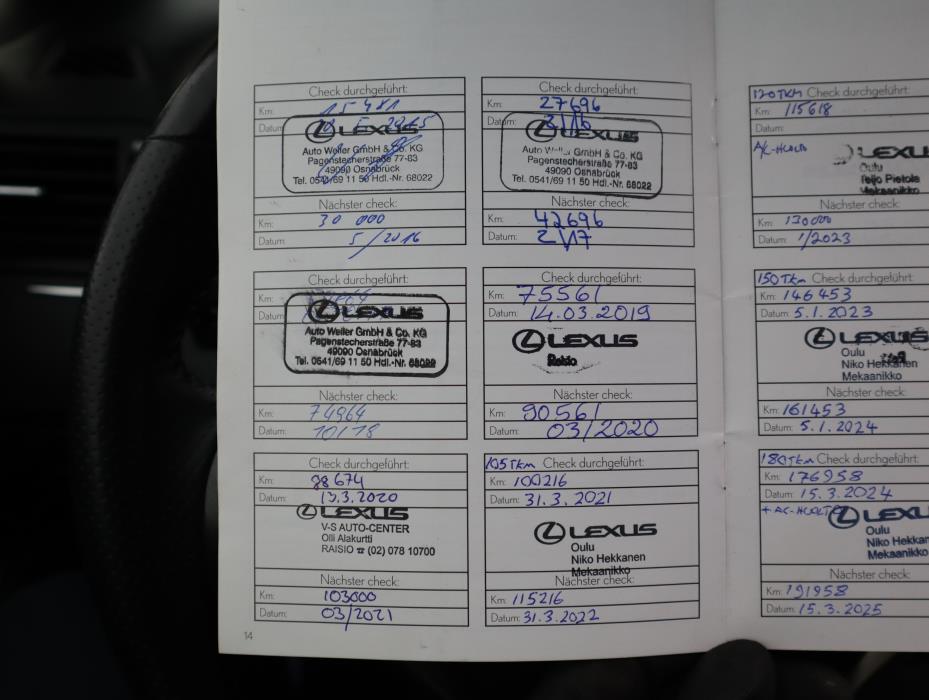 Check durchgeführt:
Km: 15 481
Datum:
LEXUS
Auto Weller GmbH & Co. KG
Pagenstecherstraße 77-83
49090 Osnabrück
Tel. 0541/69 11 50 Hdl.-Nr. 68022
Nächster check:
Km: 30 000
Datum: 5/2016
Check durchgeführt:
Km: 27696
Datum: 2/16
LEXUS
Auto Weller GmbH & Co. KG
Pagenstecherstraße 77-83
49090 Osnabrück
Tel. 0541/69 11 50 Hdl.-Nr. 68022
Nächster check:
Km: 42696
Datum: 2/17
Check durchgeführt:
Km:
Datum:
LEXUS
Auto Weller GmbH & Co. KG
Pagenstecherstraße 77-83
49090 Osnabrück
Tel. 0541/69 11 50 Hdl.-Nr. 68022
Nächster check:
Km: 74964
Datum: 10/18
Check durchgeführt:
Km: 75561
Datum: 14.03.2019
LEXUS
Nächster check:
Km: 90561
Datum: 03/2020
Check durchgeführt:
Km: 88674
Datum: 13.3.2020
LEXUS
V-S AUTO-CENTER
Olli Alakurtti
RAISIO ☎ (02) 078 10700
Nächster check:
Km: 103000
Datum: 03/2021
105Tkm Check durchgeführt:
Km: 100216
Datum: 31.3.2021
LEXUS
Oulu
Niko Hekkanen
Mekaanikko
Nächster check:
Km: 115216
Datum: 31.3.2022
14
120TKM Check durchgeführt:
Km: 115618
Datum:
A/C-HUOLTO
LEXU
Oulu
Teijo Pietola
Mekaanikko
Nächster check:
Km: 130000
Datum: 1/2023
150Tkm Check durchgeführt:
Km: 146453
Datum: 5.1.2023
LEXUS
Oulu
Niko Hekkanen
Mekaanikko
Nächster check:
Km: 161453
Datum: 5.1.2024
180Tkm Check durchgeführt:
Km: 176958
Datum: 15.3.2024
+ AC-HUOLTO
LEXU
Oulu
Niko Hekkan
Mekaanikko
Nächster check:
Km: 191958
Datum: 15.3.2025